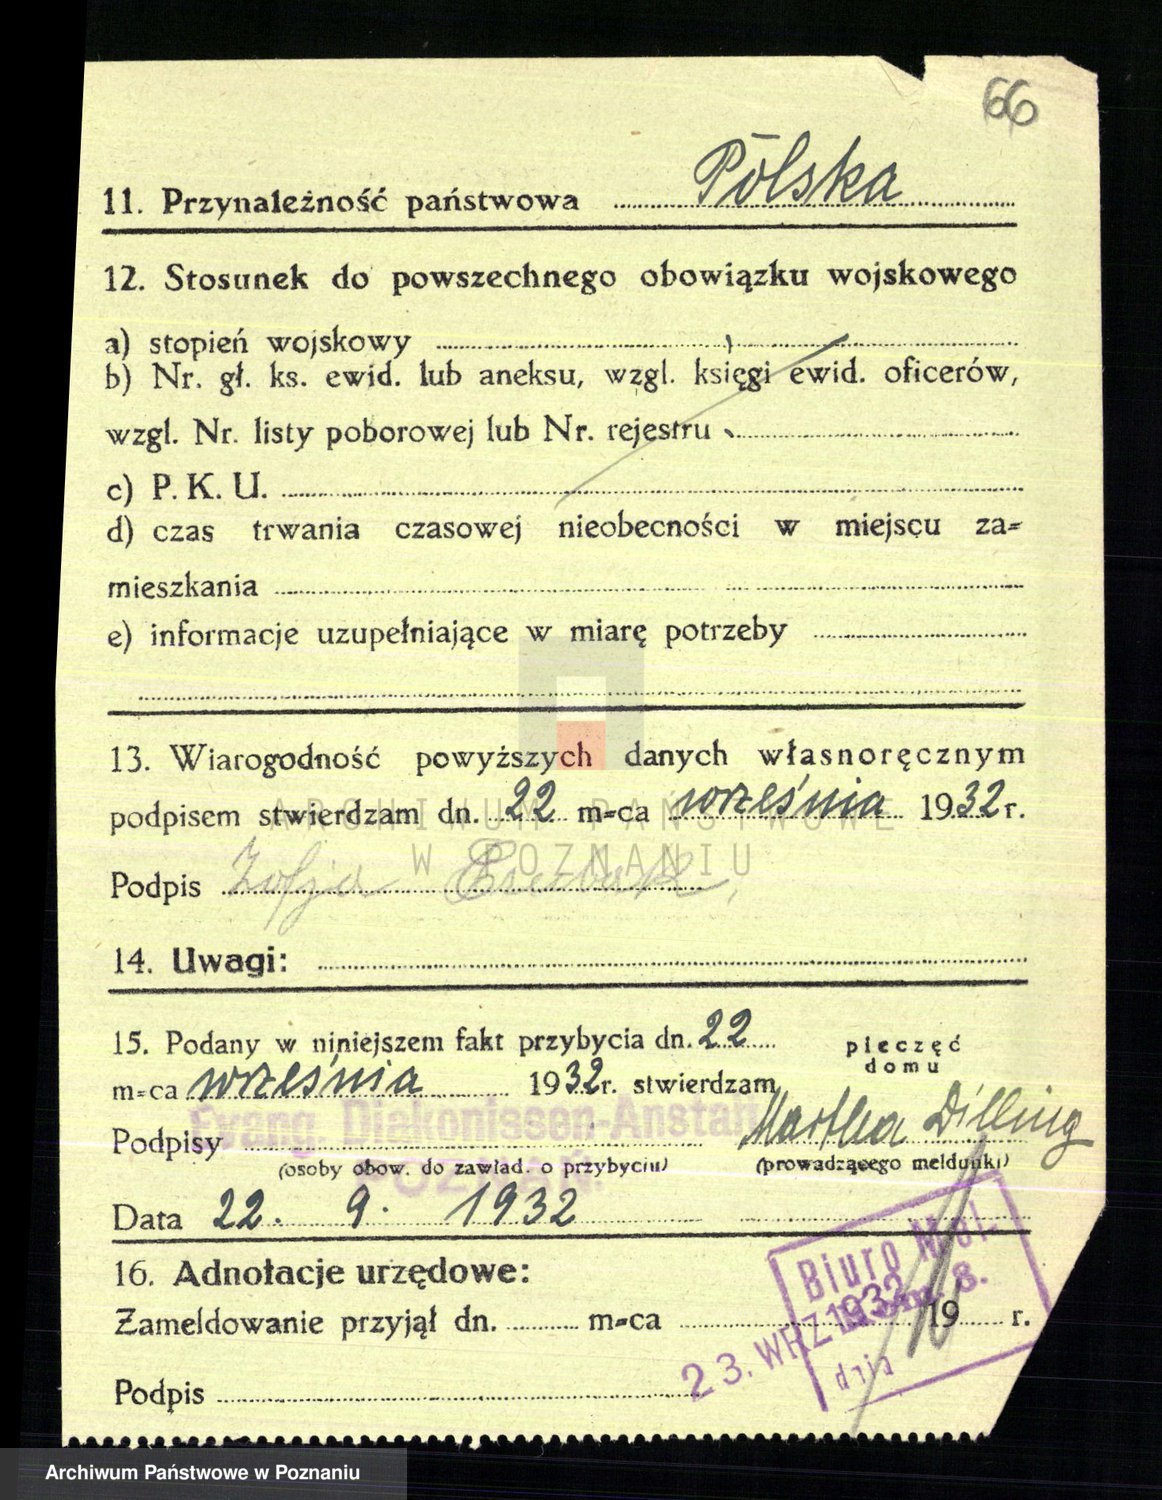 66
11. Przynależność państwowa Polska
12. Stosunek do powszechnego obowiązku wojskowego
a) stopień wojskowy
b) Nr. gł. ks. ewid. lub aneksu, wzgl. księgi ewid. oficerów,
wzgl. Nr. listy poborowej lub Nr. rejestru
c) P. K. U.
d) czas trwania czasowej nieobecności w miejscu za-
mieszkania
e) informacje uzupełniające w miarę potrzeby
13. Wiarogodność powyższych danych własnoręcznym
podpisem stwierdzam dn. 22 m-ca września 1932 r.
ARCHIWUM PAŃSTWOWE
W POZNANIU
Podpis Zofja
14. Uwagi:
15. Podany w niniejszem fakt przybycia dn. 22
pieczęć
domu
m-ca września 1932 r. stwierdzam
Evang. Diakonissen-Anstalt
POZNAŃ.
Podpisy Martha Dilling
(osoby obow. do zawiad. o przybyciu) (prowadzącego meldunki)
Data 22. 9. 1932
16. Adnotacje urzędowe:
Zameldowanie przyjął dn. m-ca 19 r.
Biuro Mel.
8.
23. WRZ 1932
dnia
Podpis
Archiwum Państwowe w Poznaniu